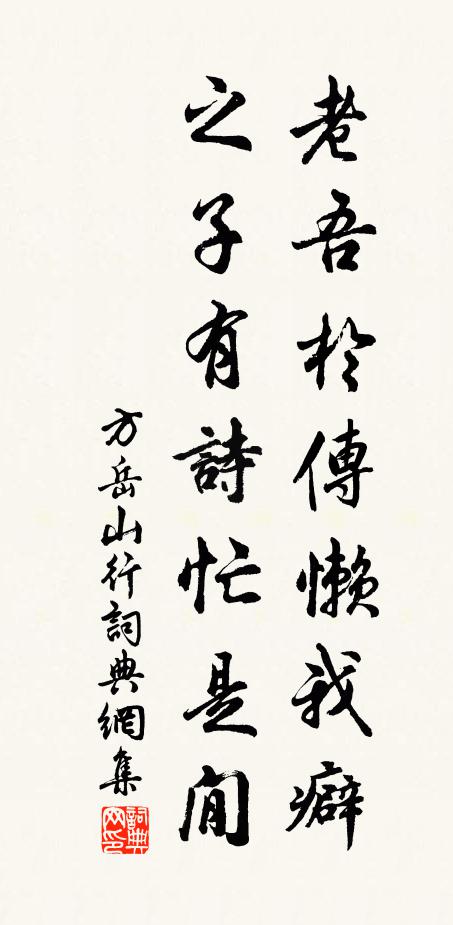 老吾於傳懶我癖
之子有詩忙是閒
方岳山行詞典網集
詞典网印